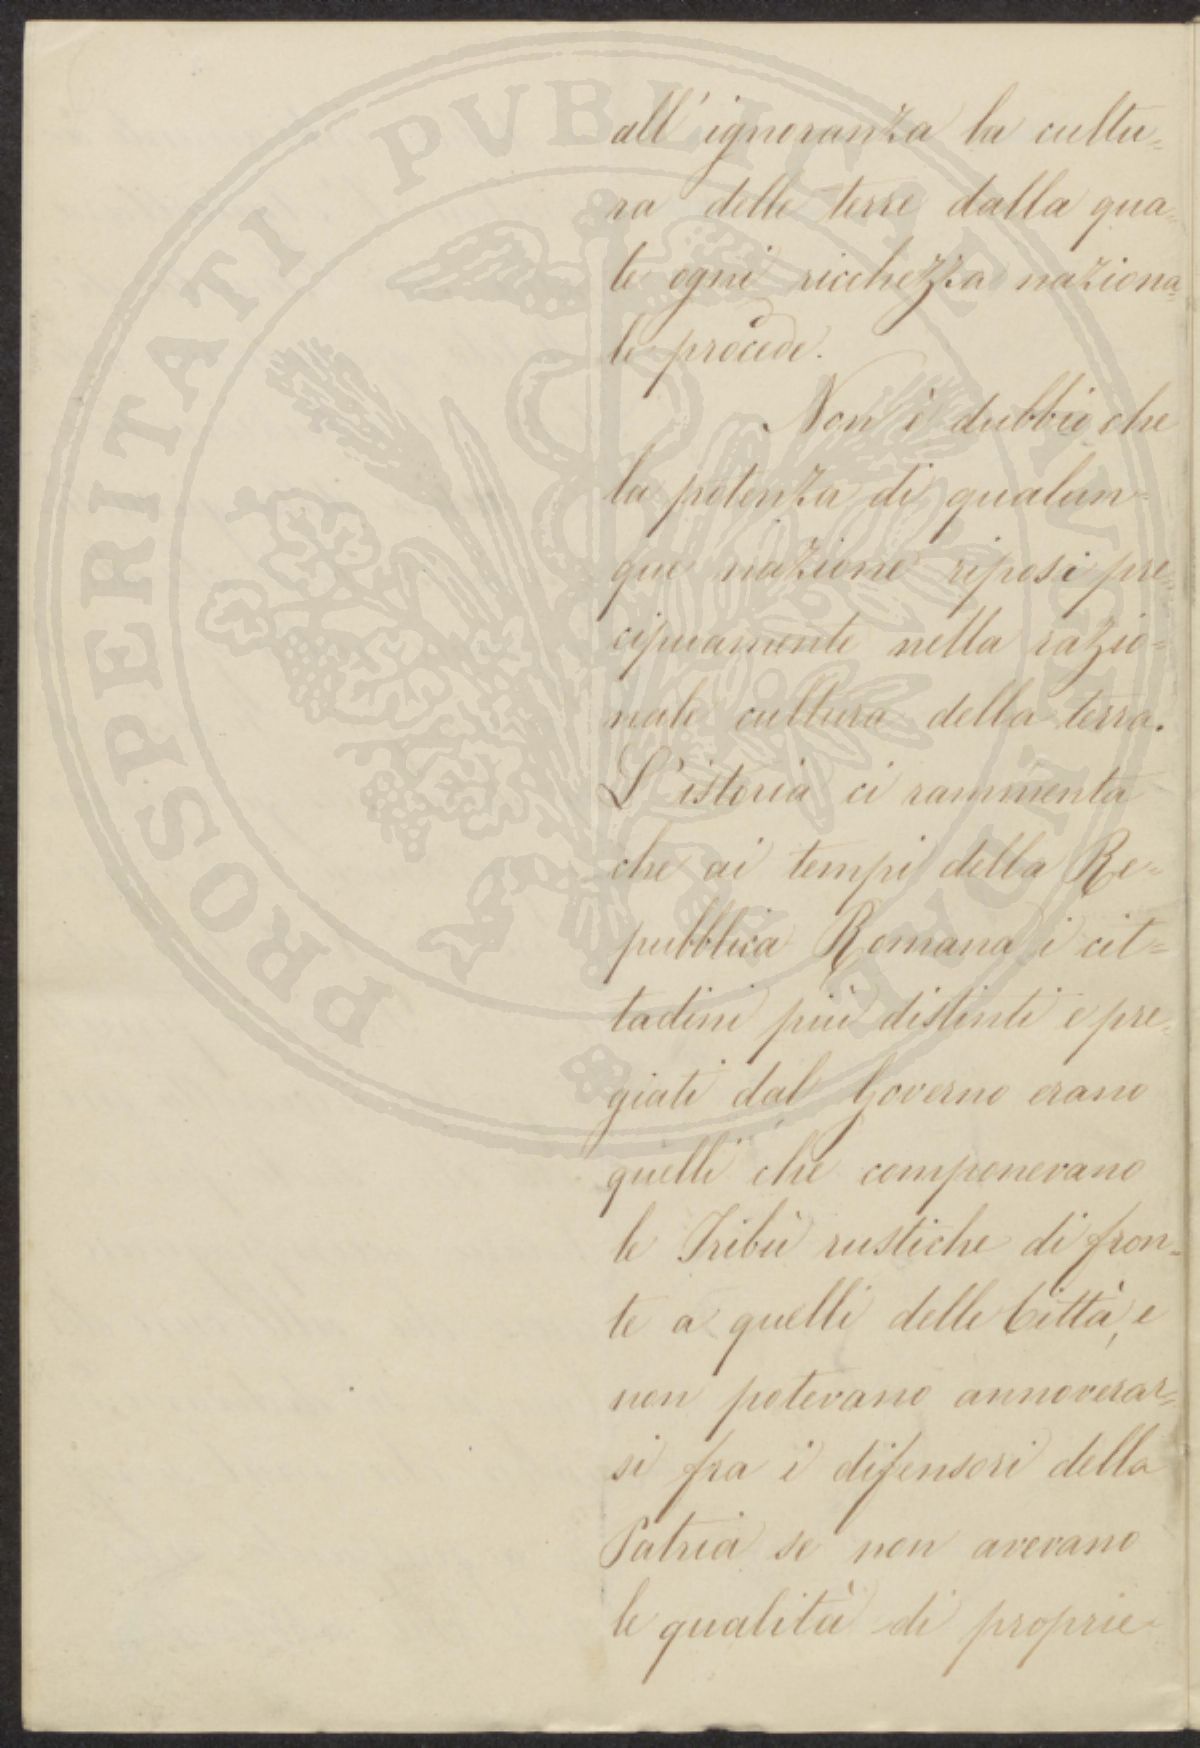 all'ignoranza la cultu=
ra delle terre dalla qua=
le ogni ricchezza naziona=
le procede.
Non è dubbio che
la potenza di qualun=
que nazione riposi pre=
cipuamente nella razio=
nale cultura della terra.
L'istoria ci rammenta
che ai tempi della Re=
pubblica Romana i cit=
tadini più distinti e pre=
giati dal Governo erano
quelli che componevano
le Tribù rustiche di fron=
te a quelli delle Città, e
non potevano annoverar=
si fra i difensori della
Patria se non avevano
le qualità di proprie
PROSPERITATI PVBLICAE